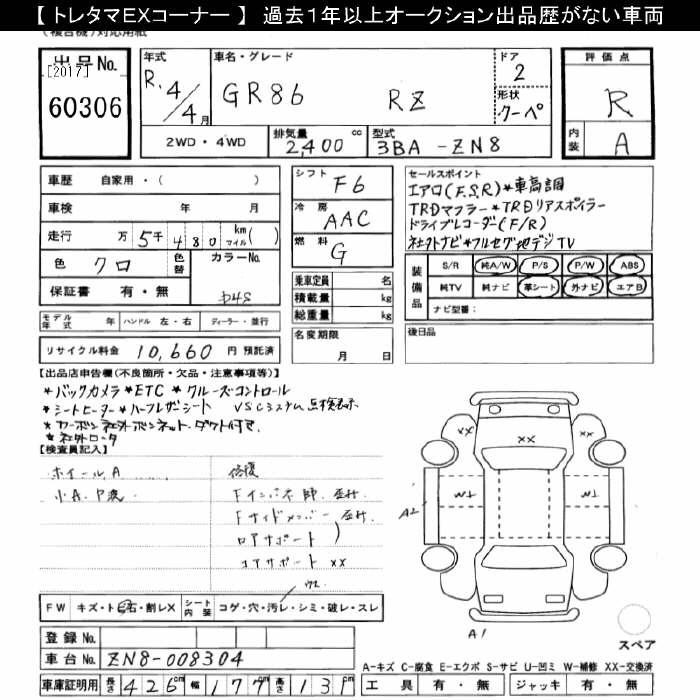 【 トレタマEXコーナー 】 過去1年以上オークション出品歴がない車両
出品No.
[2017]
60306
年式
R. 4/4月
車名・グレード
GR86 RZ
ドア
2
形状
クーペ
2WD・4WD
排気量
2,400 cc
型式
3BA-ZN8
評価点
R
内装
A
車歴 自家用・( )
車検 年 月
走行 万 5千480 km マイル( )
色 クロ 色替 カラーNo.
保証書 有・無 D4S
モデル年式 年 ハンドル 左・右 ディーラー・並行
リサイクル料金 10,660 円 預託済
シフト
F6
冷房
AAC
燃料
G
乗車定員 名
積載量 kg
総重量 kg
名変期限
月 日
セールスポイント
エアロ(F.S.R)*車高調
TRDマフラー*TRDリアスポイラー
ドライブレコーダー(F/R)
社外ナビ*フルセグ地デジTV
装備品
S/R 純A/W P/S P/W ABS
純TV 純ナビ 革シート 外ナビ エアB
ナビ型番:
後日品
【出品店申告欄(不良箇所・欠品・注意事項等)】
*バックカメラ*ETC *クルーズコントロール
*シートヒーター*ハーフレザーシート VSCシステム点検表示
*カーボン社外ボンネット.ダクト付き.
*社外ロータ
【検査員記入】
ホイールA
小A.P波
修復
Fインパネ部.歪み.
Fサイドメンバー歪み.
ロアサポート
コアサポート XX
W2
FW キズ・ト石・割レX シート内装 コゲ・穴・汚レ・シミ・破レ・スレ
登録No.
車台No. ZN8-008304
車庫証明用 長さ 426cm 幅 177cm 高さ 131cm
XX
XX
W1
W1
A2
A1
スペア
A-キズ C-腐食 E-エクボ S-サビ U-凹ミ W-補修 XX-交換済
工具 有・無 ジャッキ 有・無